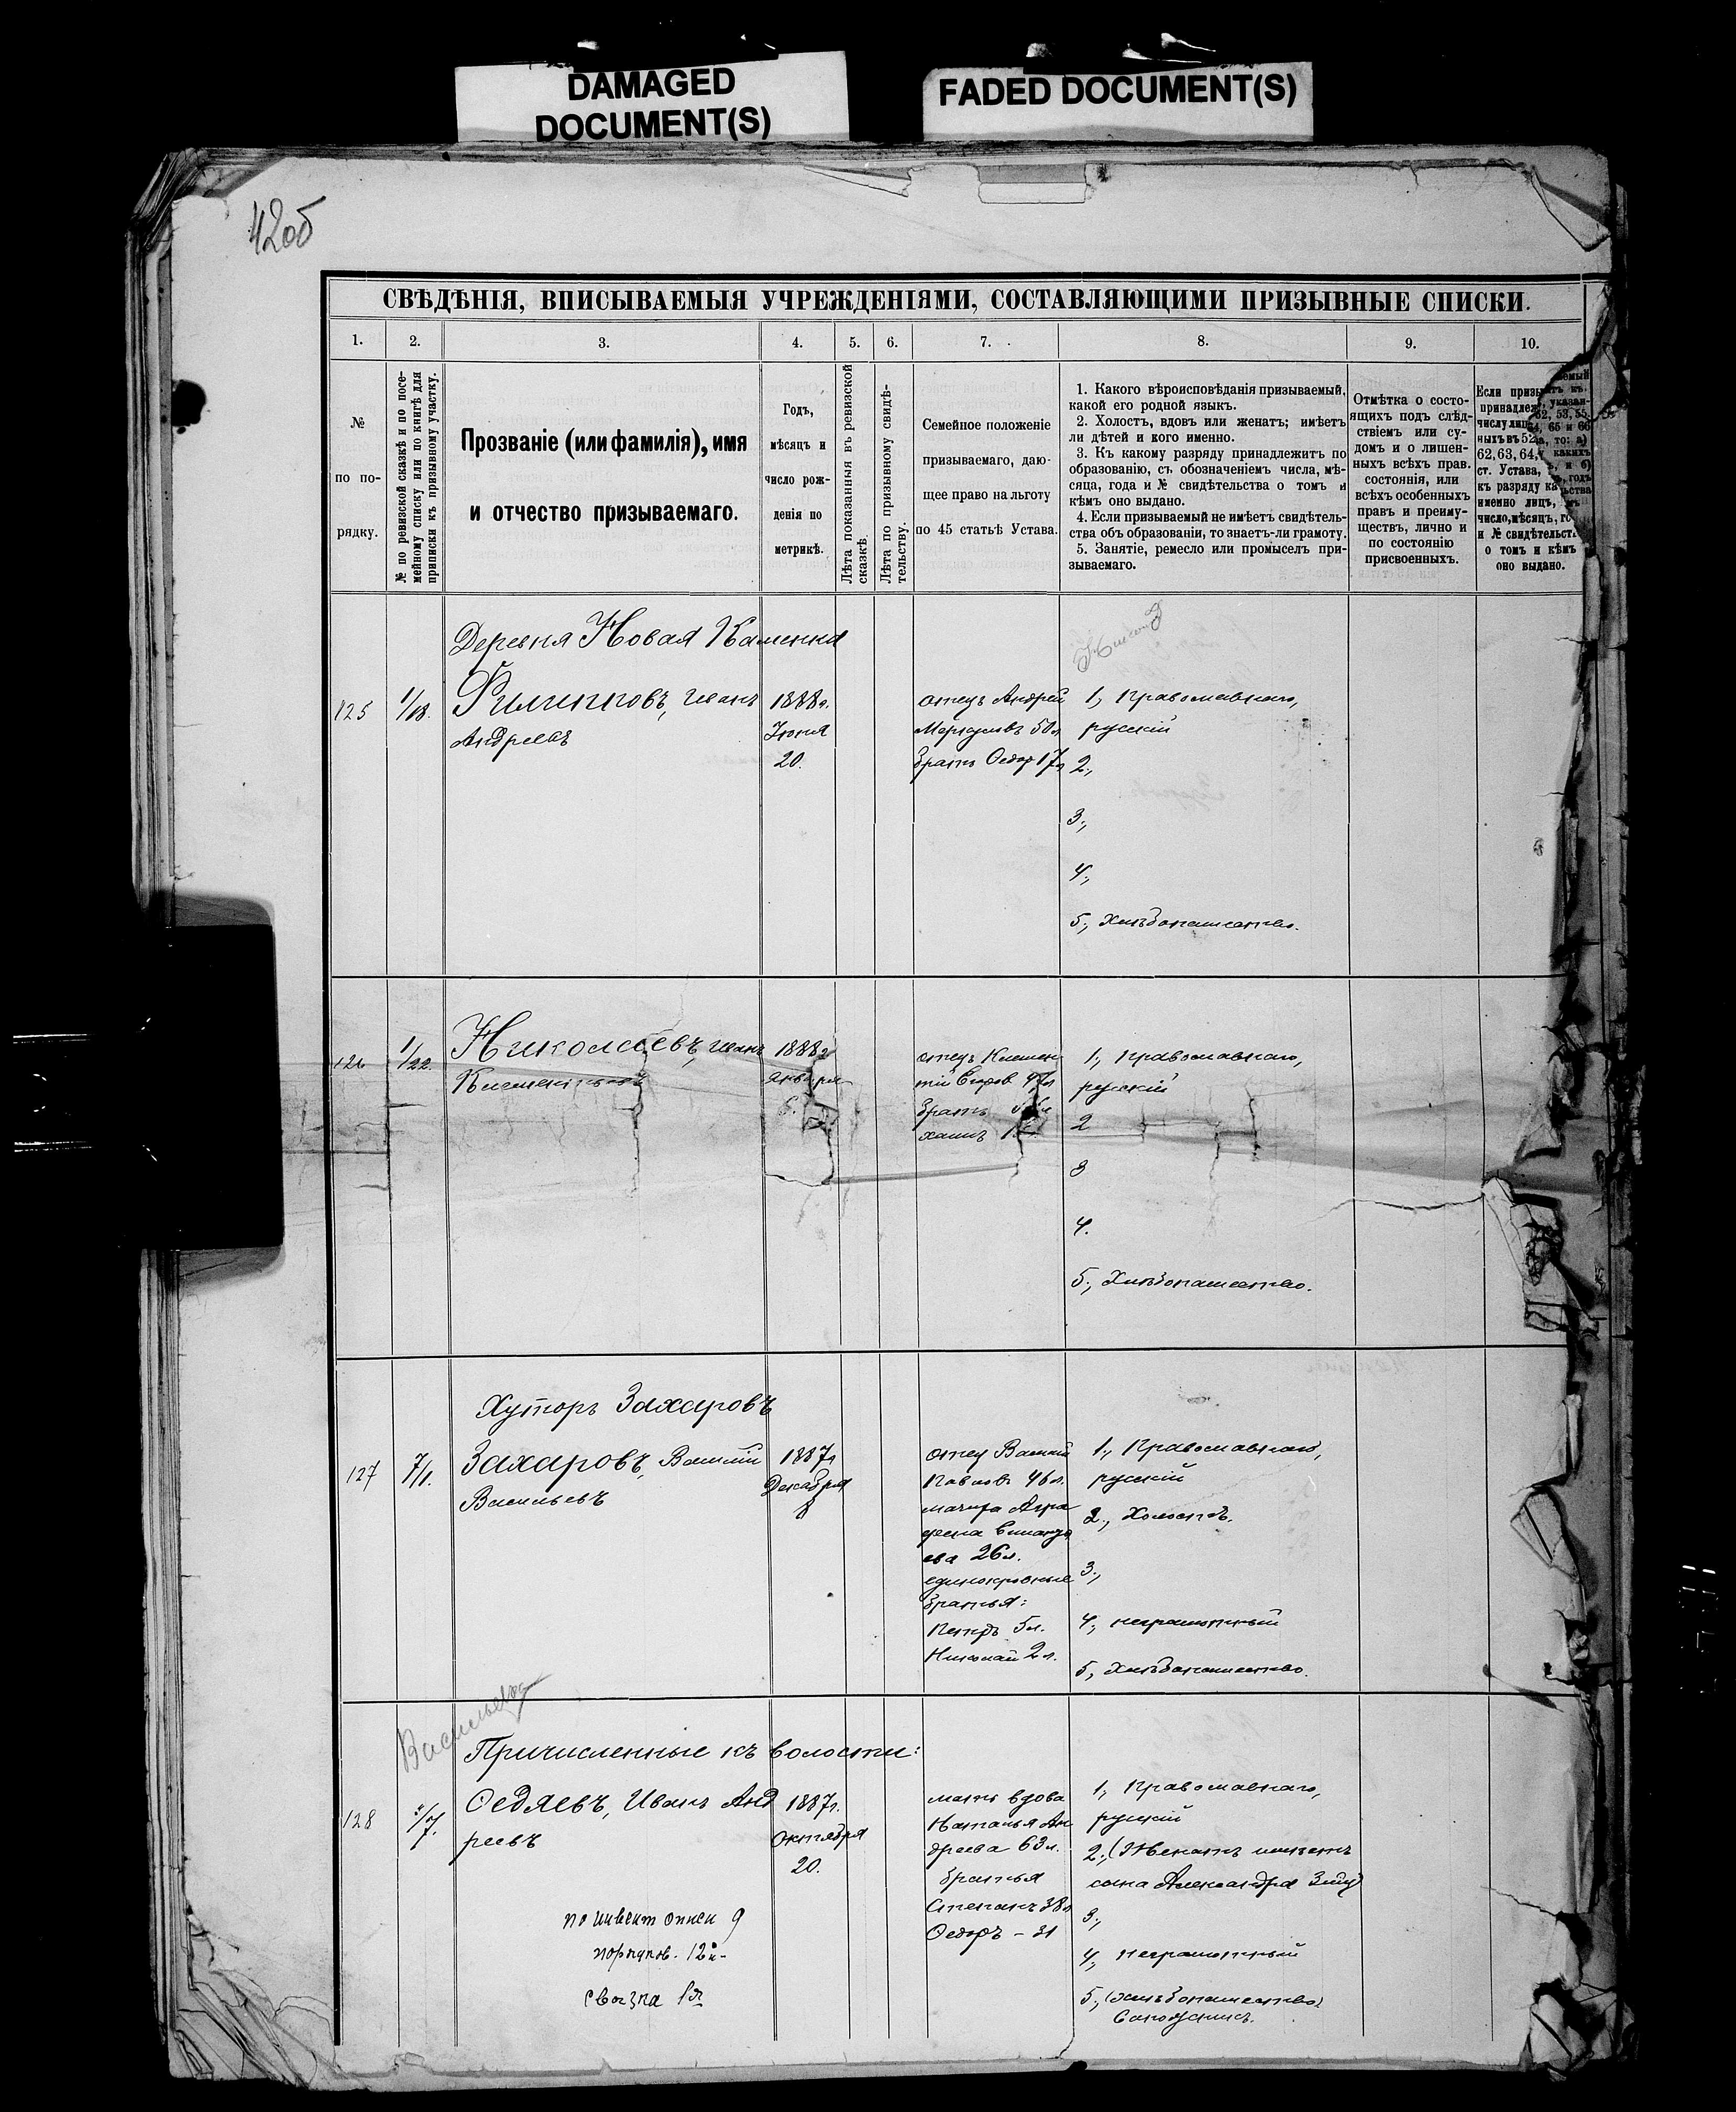 DAMAGED
DOCUMENT(S)
FADED DOCUMENT(S)
42об
СВѢДѢНІЯ, ВПИСЫВАЕМЫЯ УЧРЕЖДЕНІЯМИ, СОСТАВЛЯЮЩИМИ ПРИЗЫВНЫЕ СПИСКИ.
1.
2.
3.
4.
5.
6.
7.
8.
9.
10.
№
по по-
рядку.
№ по ревизской сказкѣ и по посе-
мейному списку или по книгѣ для
приписки къ призывному участку.
Прозваніе (или фамилія), имя
и отчество призываемаго.
Годъ,
мѣсяцъ и
число рож-
денія по
метрикѣ.
Лѣта показанныя въ ревизской
сказкѣ.
Лѣта по призывному свидѣ-
тельству.
Семейное положеніе
призываемаго, даю-
щее право на льготу
по 45 статьѣ Устава.
1. Какого вѣроисповѣданія призываемый,
какой его родной языкъ.
2. Холостъ, вдовъ или женатъ; имѣетъ
ли дѣтей и кого именно.
3. Къ какому разряду принадлежитъ по
образованію, съ обозначеніемъ числа, мѣ-
сяца, года и № свидѣтельства о томъ и
кѣмъ оно выдано.
4. Если призываемый не имѣетъ свидѣтель-
ства объ образованіи, то знаетъ-ли грамоту.
5. Занятіе, ремесло или промыселъ при-
зываемаго.
Отмѣтка о состо-
ящихъ подъ слѣд-
ствіемъ или су-
домъ и о лишен-
ныхъ всѣхъ прав.
состоянія, или
всѣхъ особенныхъ
правъ и преиму-
ществъ, лично и
по состоянію
присвоенныхъ.
Если
62, 63, 64,
ст. Устава,
къ разряду
именно лицъ,
число, мѣсяцъ,
и №
о томъ и кѣмъ
оно выдано.
Деревня Новая Каменка
125
1/18.
Филипповъ, Иванъ
Андреевъ
1888г.
Іюня
20.
отецъ Андрей
50л
братъ Ѳедор 17л
1, Православнаго,
русскій
2,
3,
4,
5, Хлѣбопашество.
126
1/22.
Николаевъ, Иванъ
Климентьевъ
1888г
января
6.
отецъ Климен-
тій Егоров 47л
братъ
1, Православнаго,
русскій
2
3
4.
5, Хлѣбопашество.
Хуторъ Захаровъ
127
7/1.
Захаровъ, Василій
Васильевъ
1887г
Декабря
8
отец Василій
Павловъ 46л.
мачиха Агра
фена
ева 26л.
единокровные
братья:
Петръ 5л.
Николай 2л.
1, Православнаго,
русскій
2, Холостъ.
3,
4, неграмотный
5, Хлѣбопашество.
Васильевъ
Причисленные къ волости:
128
Ѳедяевъ, Иванъ Анд
реевъ
1887г.
октября
20.
мать вдова
Наталья Ан
дреева 63л.
братья
Степанъ 38л
Ѳедоръ – 31
1, Православнаго,
русскій
2, Женатъ имѣетъ
сына Александра
3,
4, неграмотный
5, хлѣбопашество
Сапожникъ.
по инвент описи 9
12й
связка 1я